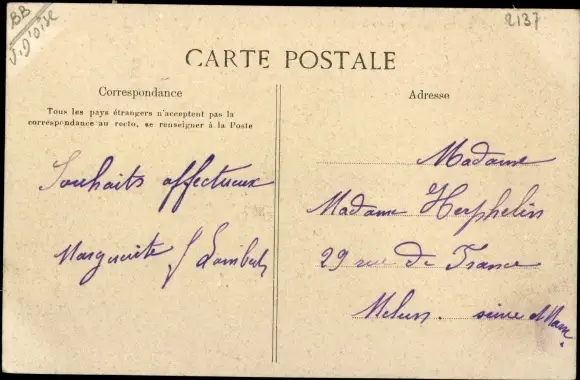 BB
V.D'OISE
2137
CARTE POSTALE
Correspondance
Tous les pays étrangers n'acceptent pas la
correspondance au recto, se renseigner à la Poste
Souhaits affectueux
Marguerite Lambert
Adresse
Madame
Madame Herphelin
29 rue de France
Melun. seine et Marne